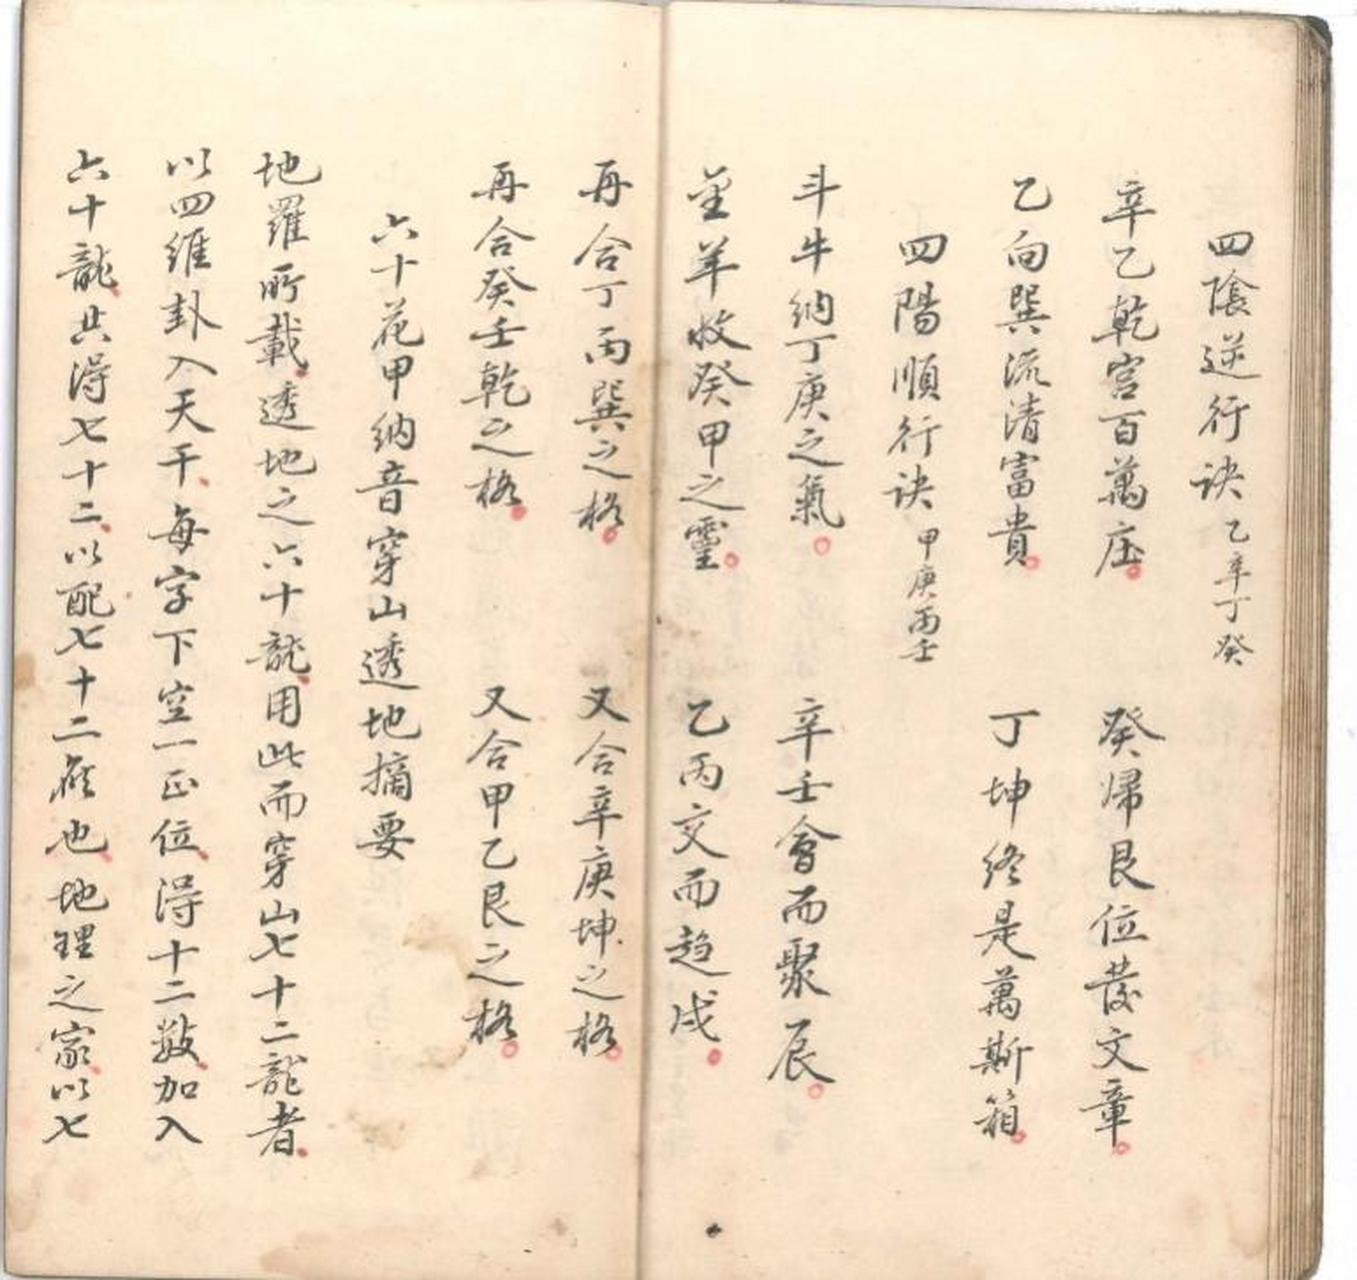 四陰逆行訣 乙辛丁癸
辛乙乾宮百萬庄。 癸歸艮位發文章。
乙向巽流清富貴。 丁坤終是萬斯箱。
四陽順行訣 甲庚丙壬
斗牛納丁庚之氣。 辛壬會而聚辰。
金羊收癸甲之靈。 乙丙交而趋戍。
再合丁丙巽之格。 又合辛庚坤之格。
再合癸壬乾之格。 又合甲乙艮之格。
六十花甲納音穿山透地摘要
地羅所載、透地之六十龍、用此而穿山七十二龍者、
以四維卦入天干、每字下空一正位、得十二數、加入
六十龍、共得七十二、以配七十二候也、地理之家、以七